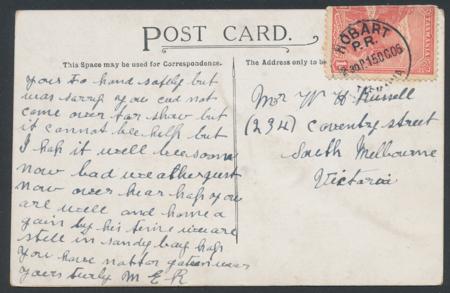 POST CARD.
This Space may be used for Correspondence.
The Address only to be
yours to hand safely but
was sorry you cud not
come over for show but
it cannot be help but
I hop it will be soon
now bad weather just
now over hear hop you
are well and home a
gain by this time we are
still in sandy bay hop
you have not
yours turly M E R
Mr W H Russell
(234) Coventry street
South Melbourne
Victoria
HOBART
P.R.
15 DC 06
TASMANIA